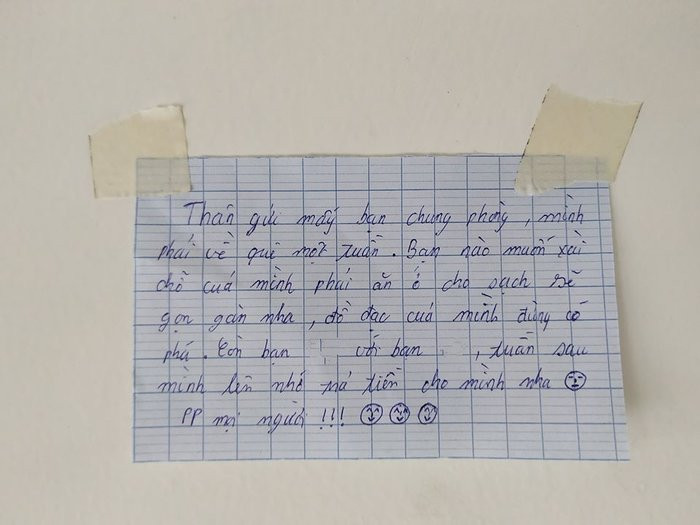 Thân gửi mấy bạn chung phòng, mình
phải về quê một tuần. Bạn nào muốn xài
chỗ của mình phải ăn ở cho sạch sẽ
gọn gàn nha, đồ đạc của mình đừng có
phá. Còn bạn với bạn , tuần sau
mình lên nhớ trả tiền cho mình nha
PP mọi người!!!